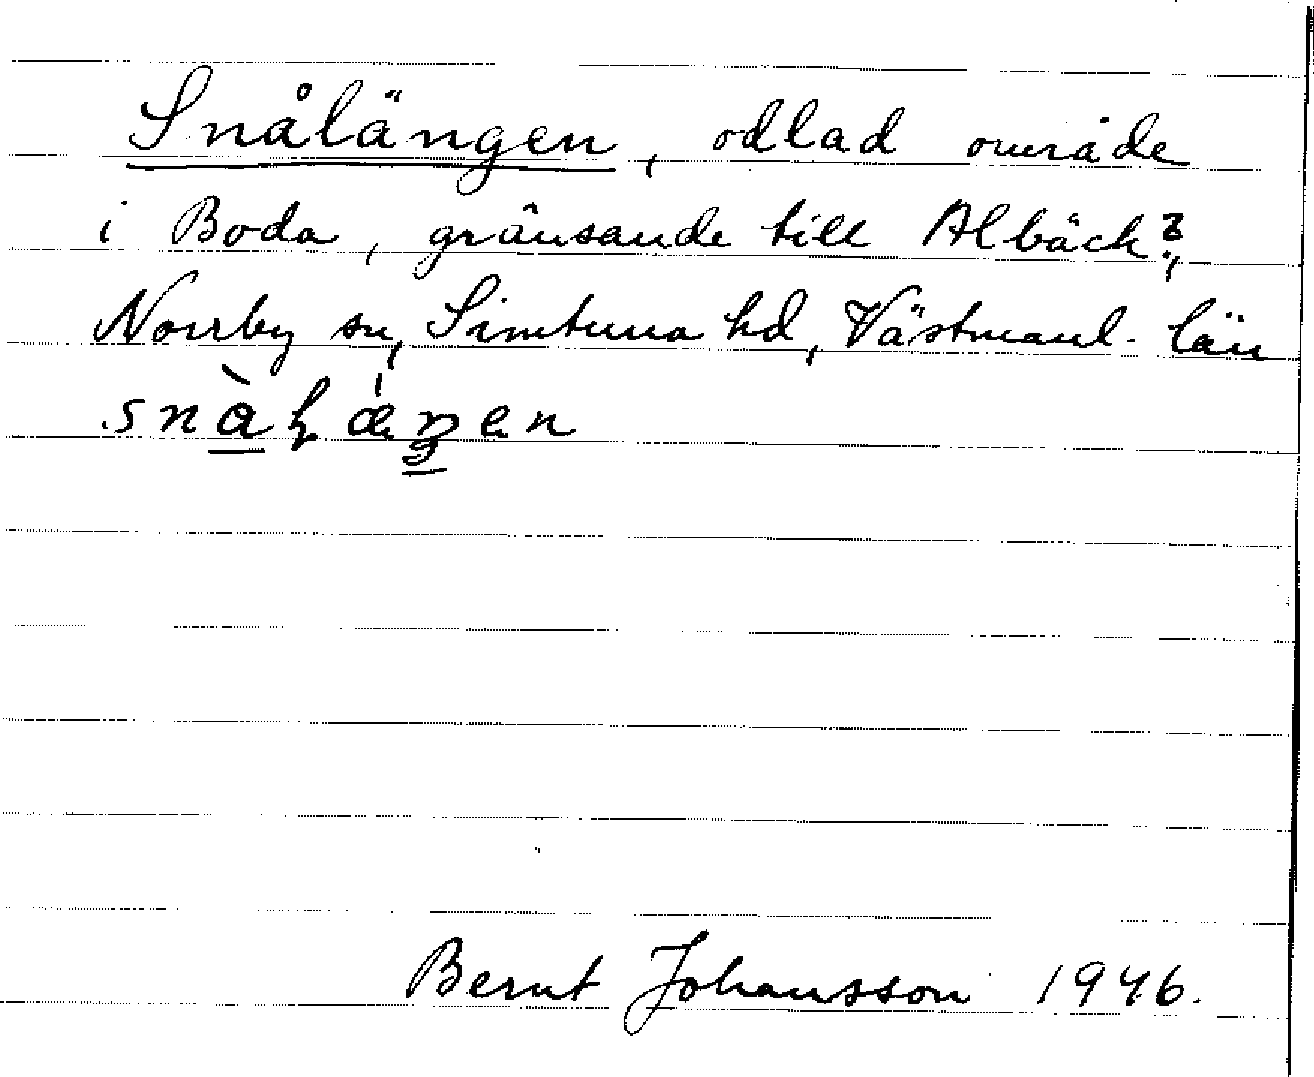 Snålängen, odlad område
i Boda, gränsande till Albäck?,
Norrby sn, Simtuna hd, Västmanl. län
Bernt Johansson 1946.